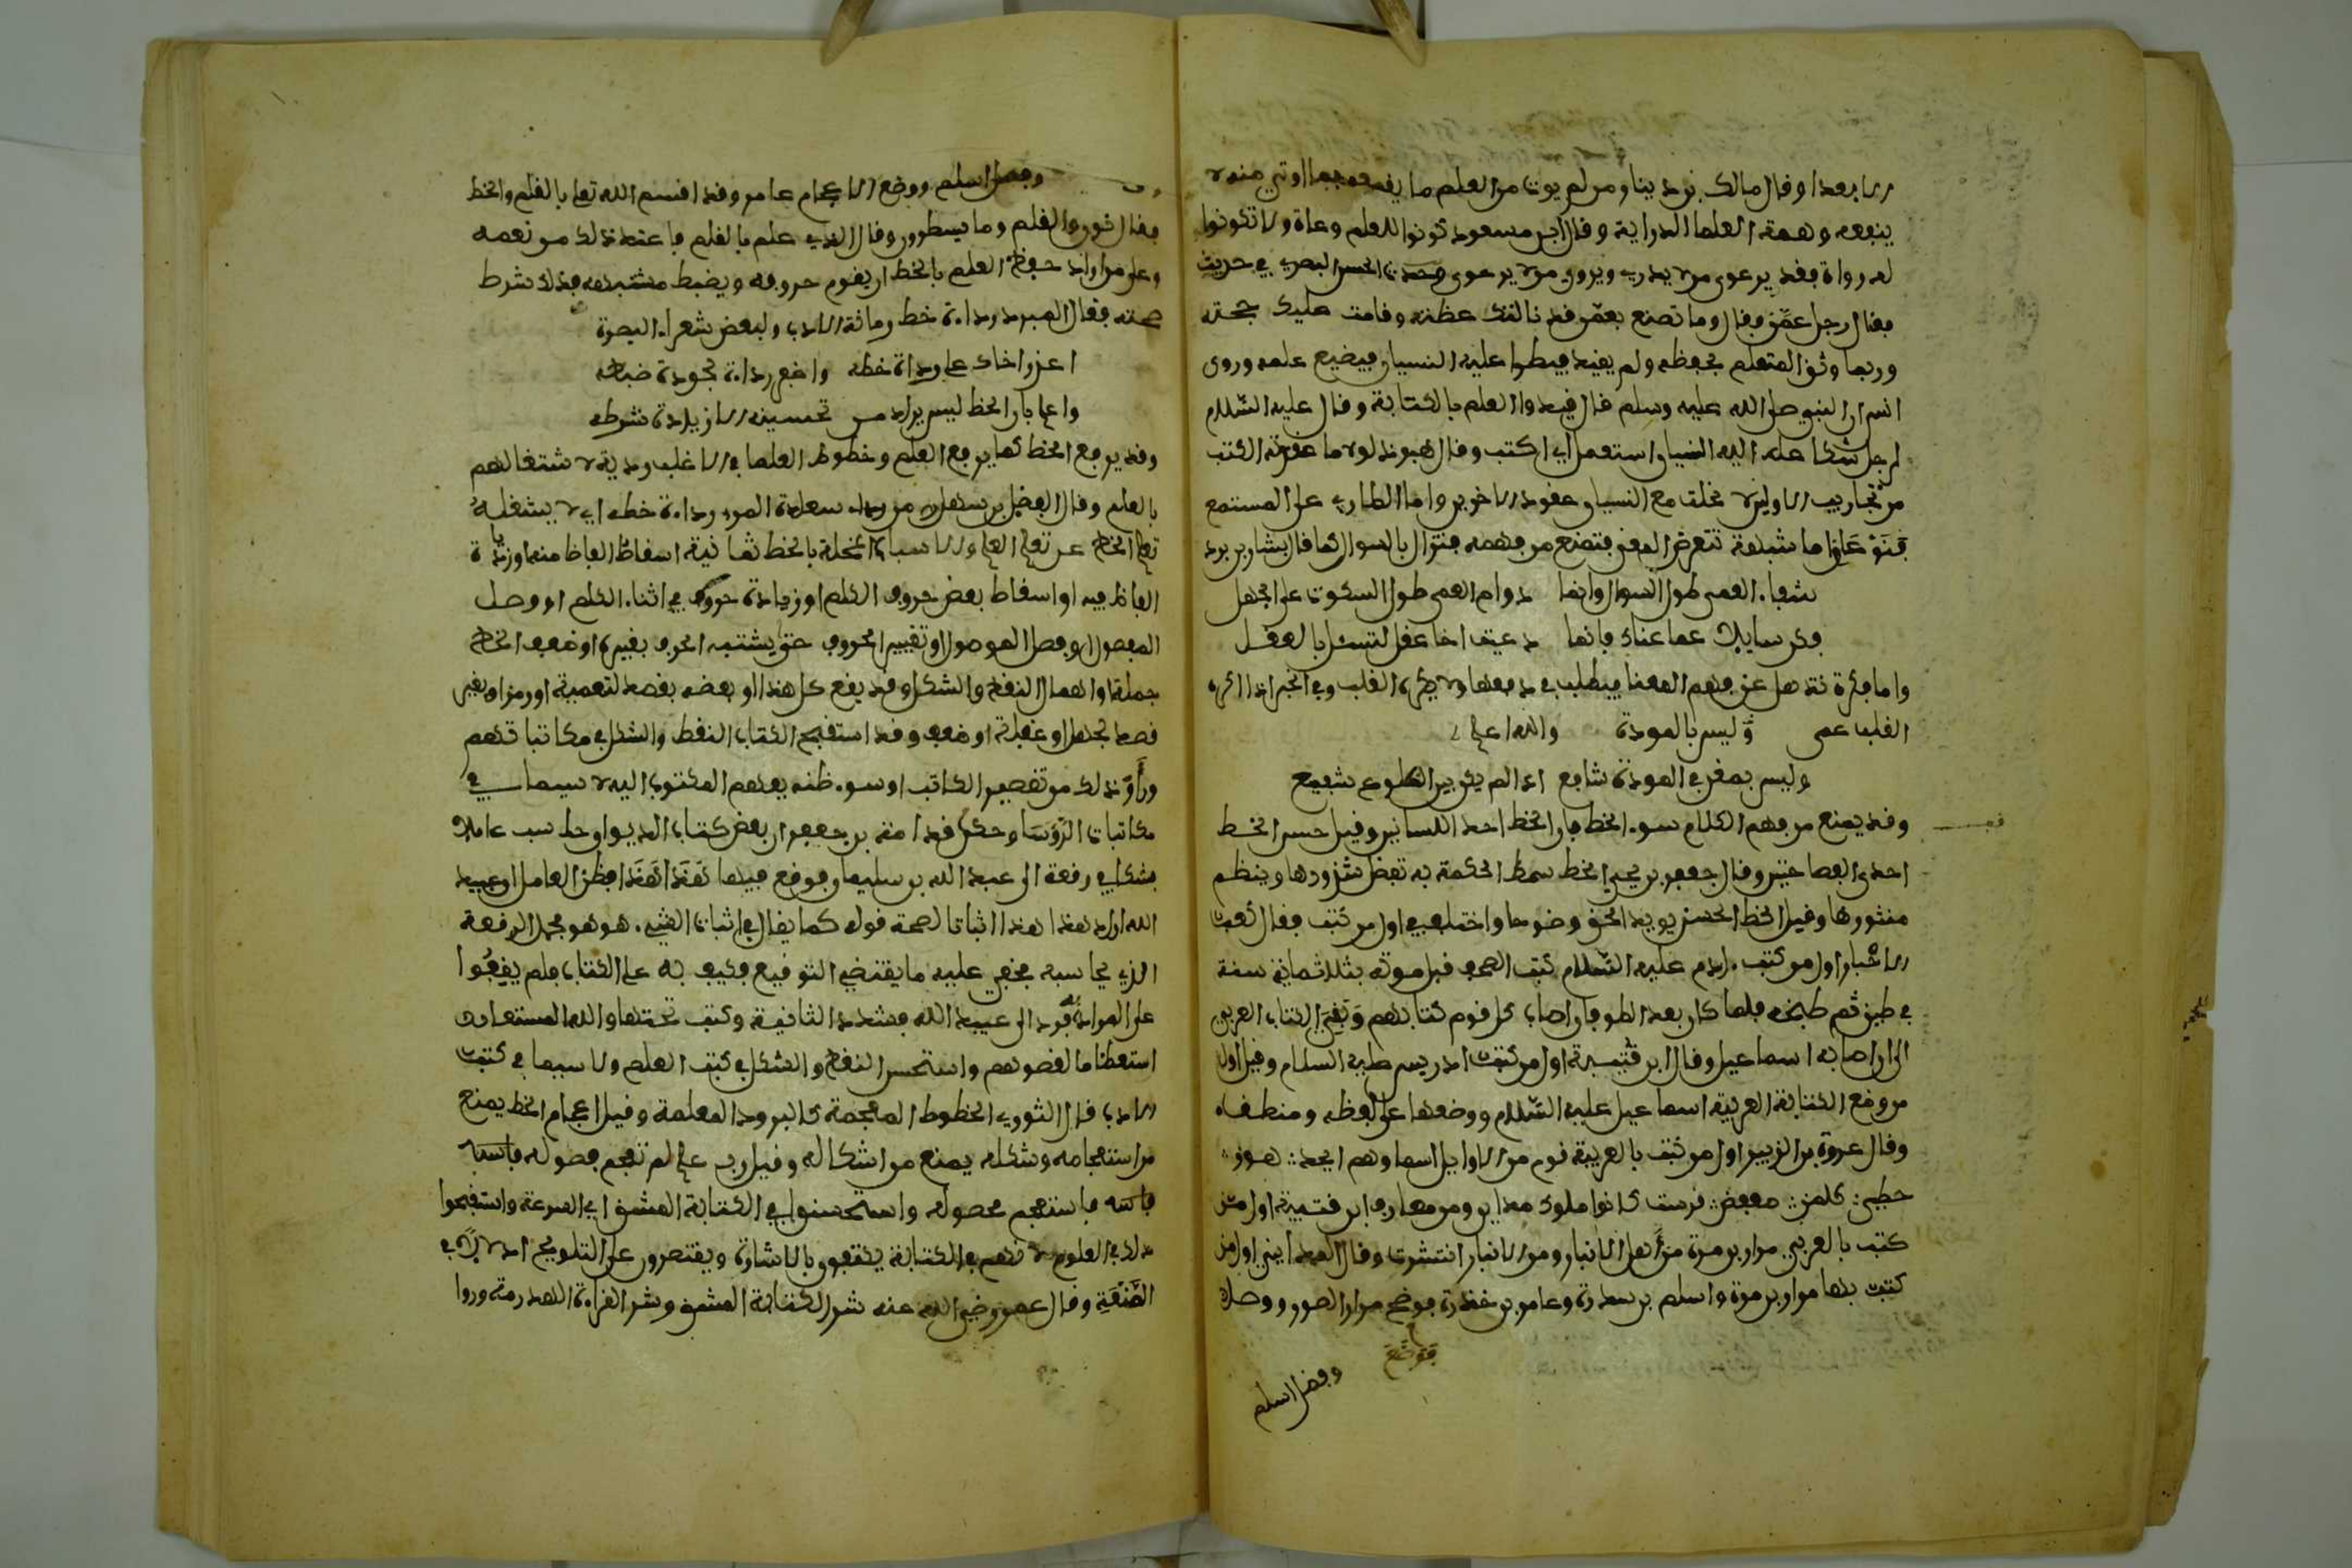 الا بعدا وقال مالك بن دينار ومن لم يوت من العلم ما يقمعه فما اوتي منه لا
ينفعه وهمة العلما الدراية وقال ابن مسعود كونوا للعلم وعاة ولا تكونوا
له رواة فقد يرعوى من لا يدري ويروي من لا يرعوى وحدث الحسن البصري بحديث
فقال رجل عمن فقال وما تصنع بعمن قد نالتك عظته وقامت عليك حجته
وربما وثق المتعلم بحفظه ولم يقيد فيطرا عليه النسيان فيضيع علمه وروى
انس ان النبي صلى الله عليه وسلم قال قيدوا العلم بالكتابة وقال عليه السلام
لرجل شكا اليه النسيان استعمل اي اكتب وقال لولا ما عقدته الكتب
من تجاريب الاولين لانحلت مع النسيان عقود الاخرين واما الطاري على المستمع
فنوعان اما شبهة تعترض المعنى فتمنع من فهمه فتزال بالسوال كما قال بشار بن برد
شفاء العمى طول السوال وانما دوام العمى طول السكوت على الجهل
فكن سايلا عما عناك فانما دعيت اخا عقل لتسئل بالعقل
واما فكرة تذهل عن فهم المعنا فيطلب دفعها ولا يكره القلب وفي الخبر اذا اكره
القلب عمي وليس بالمودة والله اعلم
وليس بمغن في المودة شافع اذا لم يكن بين الضلوع شفيع
وقد يمنع من فهم الكلام سوء الخط فان الخط احد اللسانين وقيل حسن الخط
احدى الفصاحتين وقال جعفر بن يحيى الخط سمط الحكمة به تفصل شذورها وينظم
منثورها وقيل الخط الحسن يزيد الحق وضوحا واختلف في اول من كتب فقال كعب
الاحبار اول من كتب ادم عليه السلام كتب الصحف قبل موته بثلاثماية سنة
في طين ثم طبخه فلما كان بعد الطوفان اصاب كل قوم كتابهم وبقي الكتاب العربي
الى ان اصابه اسماعيل وقال ابن قتيبة اول من كتب ادريس عليه السلام وقيل اول
من وضع الكتابة العربية اسماعيل عليه السلام ووضعها على لفظه ومنطقه
وقال عروة بن الزبير اول من كتب بالعربية قوم من الاوايل اسماوهم ابجد هوز
حطي كلمن صعفض قرست كانوا ملوك مدين ومن معارف ابن قتيبة اول من
كتب بالعربي مرار بن مرة من اهل الانبار ومن الانبار انتشرت وقال المدايني اول من
كتب بها مرار بن مرة واسلم بن سدرة وعامر بن خدرة فوضع مرار الصور ووصل
فوضع
وفصل اسلم
وفصل اسلم ووضع الاعجام عامر وقد اقسم الله تعلى بالقلم والخط
فقال ن والقلم وما يسطرون وقال الذي علم بالقلم فاعتد ذلك من نعمه
وعلى من اراد حفظ العلم بالخط ان يقوم حروفه ويضبط مشتبهه فذلك شرط
صحته فقال المبرد رداءة خط زمانة الادب ولبعض شعراء البصرة
اعذر اخاك على رداءة خطه واغفر رداءة لجودة ضبطه
واعلم بان الخط ليس يراد من تحسينه الا زيادة شرطه
وقد يرفع الخط كما يرفع العلم وخطوط العلما في الاغلب ردية لاشتغالهم
بالعلم وقال الفضل بن سهل من سعادة المرء رداءة خطه اي لا يشغله
تعلم الخط عن تعلم العلم والاسباب المخلة بالخط ثمانية اسقاط الفاظ منه او زيادة
الفاظ فيه او اسقاط بعض حروف الكلم او زيادة حروف في اثناء الكلم او وصل
المفصول او فصل الموصول او تغيير الحروف حتى يشتبه الحرف بغيره او ضعف الخط
جملة او اهمال النقط والشكل وقد يقع كل هذا او بعضه بقصد لتعمية او رمز او بغير
قصد لجهل او غفلة او ضعف وقد استقبح الكتاب النقط والشكل في مكاتباتهم
وراوا ذلك من تقصير الكاتب او سوء ظنه بفهم المكتوب اليه لا سيما في
مكاتبات الرؤسا وحكى قدامة بن جعفر ان بعض كتاب الديوان حاسب عاملا
فشكا في رقعة الى عبيد الله بن سليمان فوقع فيها هذا هذا فظن العامل ان عبيد
الله اراد هذا هذا اثباتا لصحة قوله كما يقال في اثبات الشيء هو هو فحمل الرقعة
الى الذي يحاسبه فخفي عليه ما يقتضي التوقيع فكيف به على الكتاب فلم يقفوا
على المراد به فرد الى عبيد الله فشدد الثانية وكتب تحتها والله المستعان
استعظاما لفضولهم واستحسن النقط والشكل في كتب العلم ولا سيما في كتب
الادب قال الثوري الخطوط المعجمة كالبرود المعلمة وقيل اعجام الخط يمنع
من استعجامه وشكله يمنع من اشكاله وقيل رب علم لم تعجم فصوله
فاستعجم محصوله واستحسنوا في الكتابة المشق اي السرعة واستقبحوا
ذلك في العلوم لانهم في الكتابة يكتفون بالاشارة ويقتصرون على التلويح اذ لا بد في
الصنعة وقال عمر رضي الله عنه شر الكتابة المشق وشر القراءة الهدرمة وروا